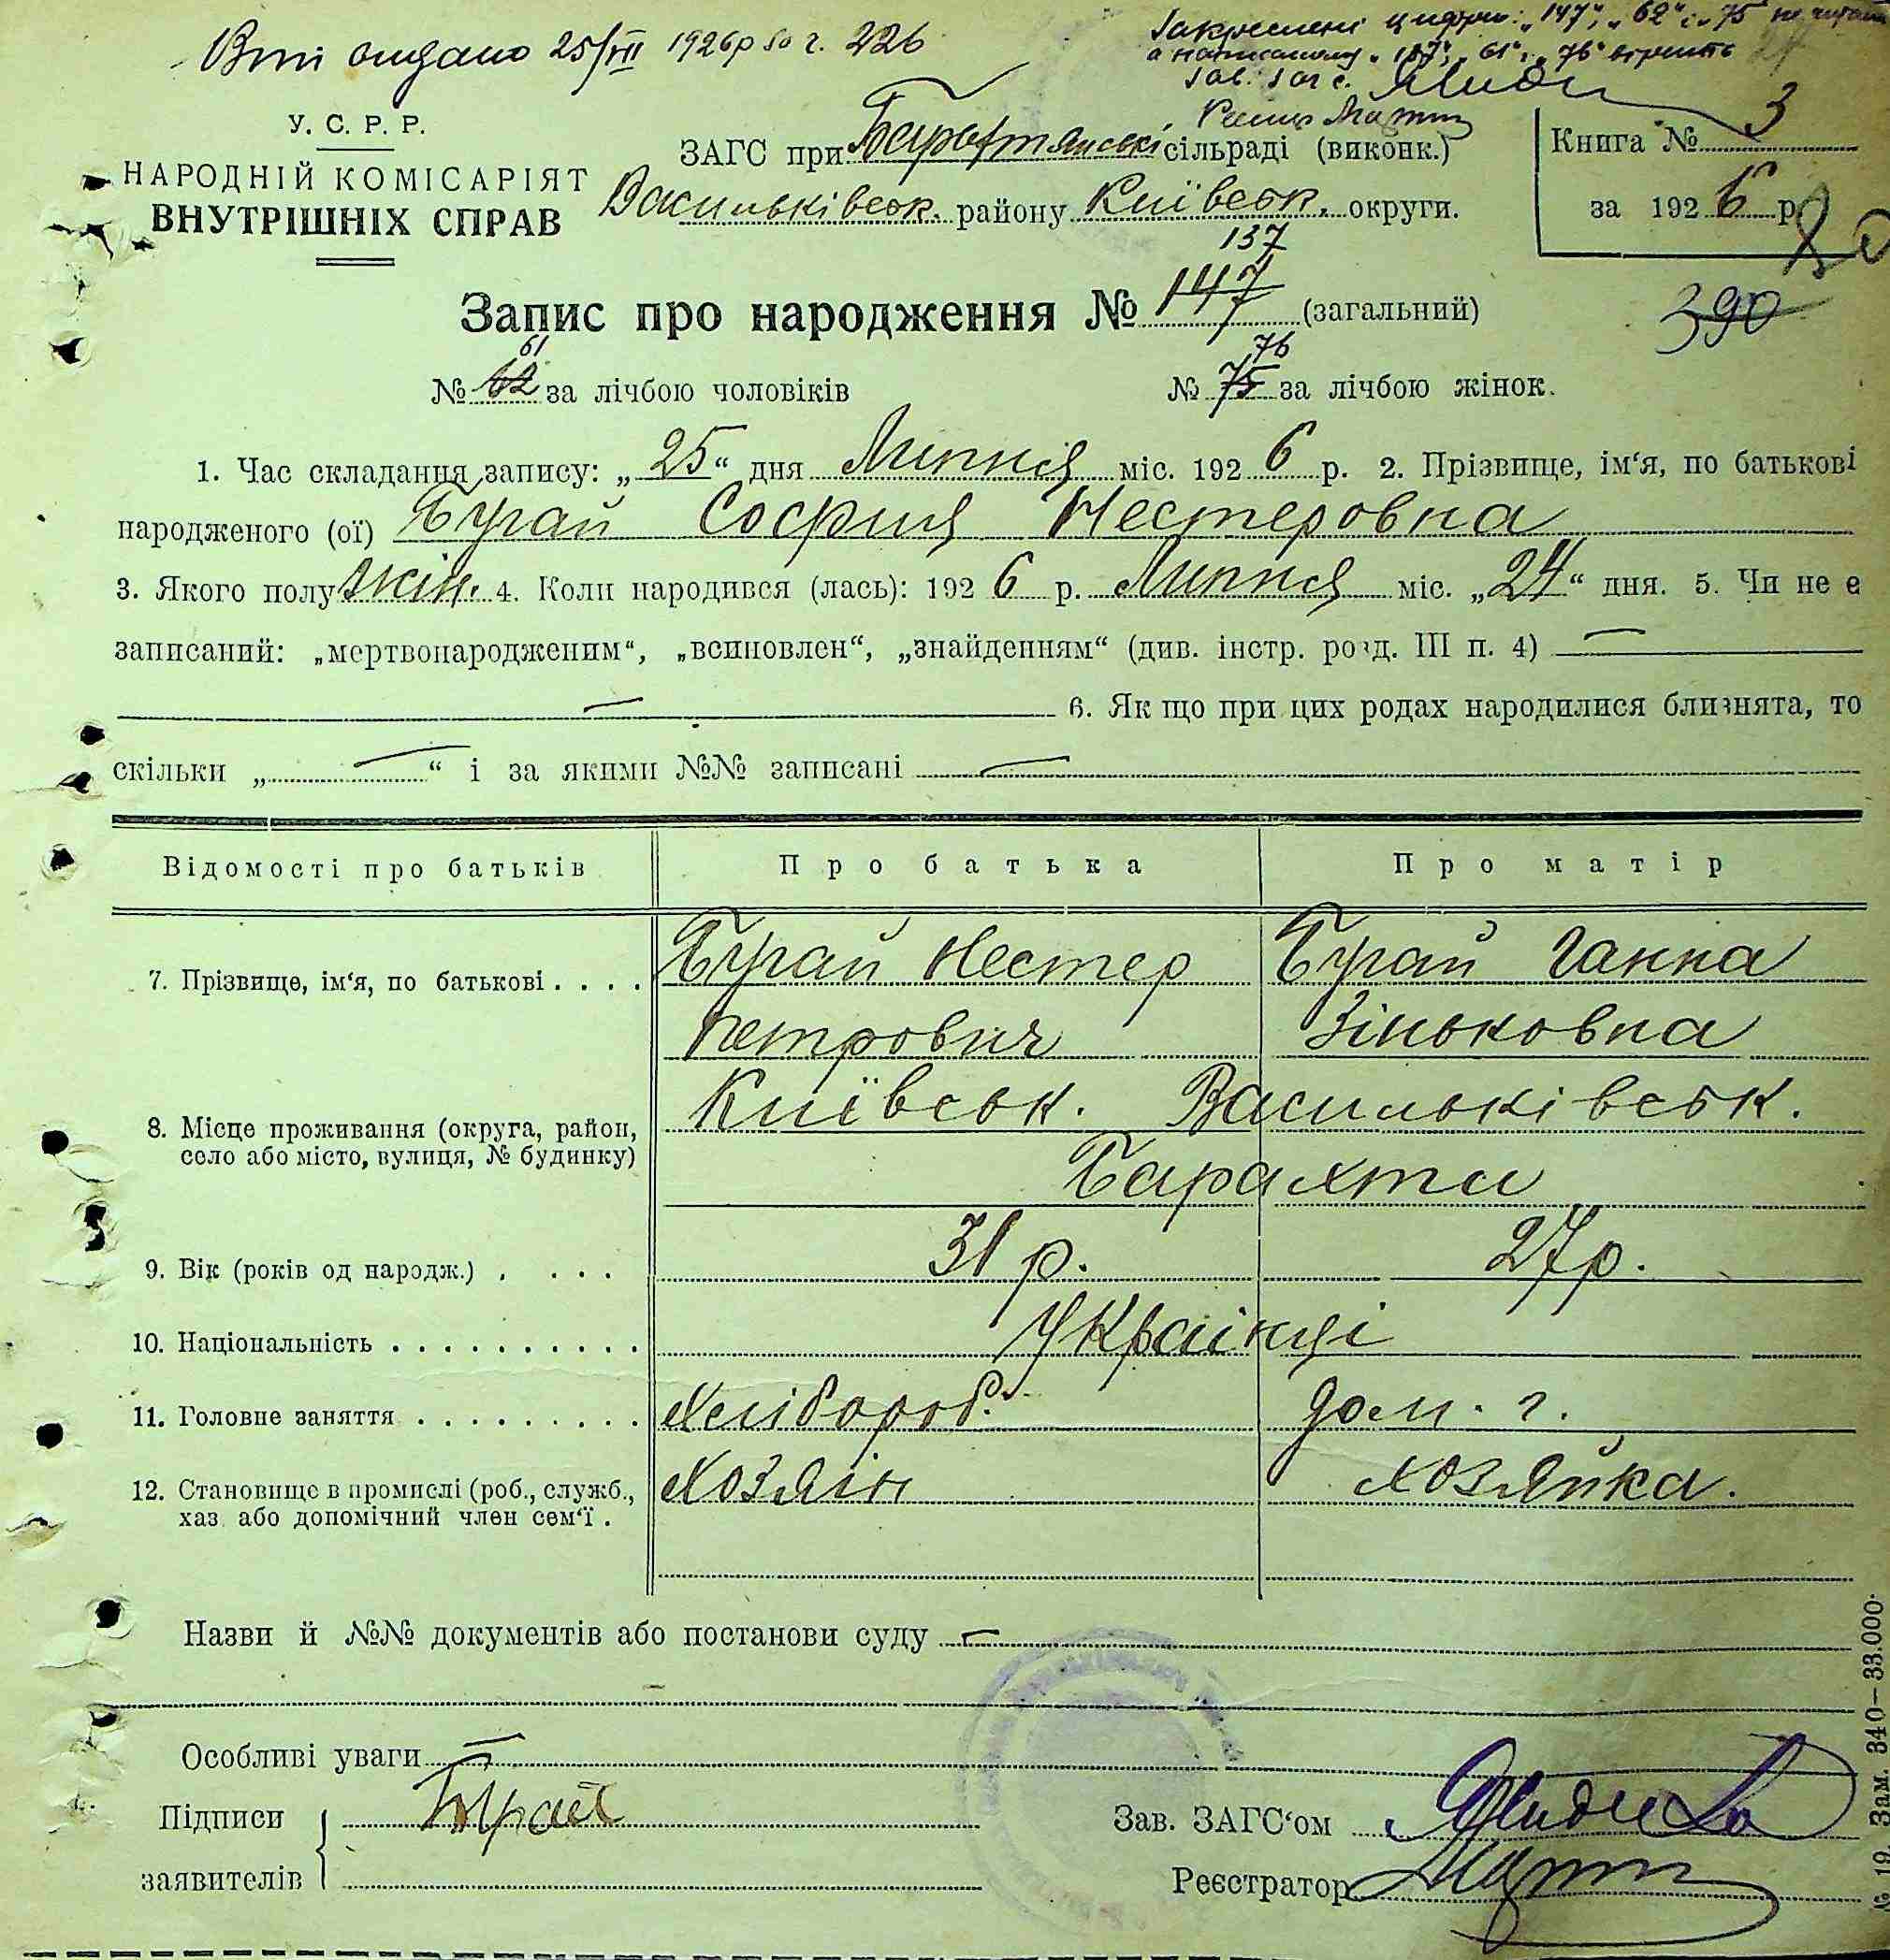 Витяг видано 25/VII 1926р за ч. 226
Закреслені цифри: „147“, „62“ і „75 не читати
а написаному „137“, „61“, „76“ вірить
Зав. Загс.
У. С. Р. Р.
НАРОДНІЙ КОМІСАРІЯТ
ВНУТРІШНІХ СПРАВ
ЗАГС при Барахтянські сільраді (виконк.)
Васильківськ. району Київськ. округи.
Книга № 3
за 1926 р.
80
390
137
Запис про народження № 147 (загальний)
61 76
№ 62 за лічбою чоловіків № 75 за лічбою жінок.
1. Час складання запису: „25“ дня Липня міс. 1926 р. 2. Прізвище, ім‘я, по батькові
народженого (ої) Бугай София Нестеровна
3. Якого полу жін. 4. Коли народився (лась): 1926 р. Липня міс. „24“ дня. 5. Чи не є
записаний: „мертвонародженим“, „всиновлен“, „знайденням“ (див. інстр. розд. III п. 4) —
— 6. Як що при цих родах народилися близнята, то
скільки „—“ і за якими №№ записані —
Відомості про батьків Про батька Про матір
7. Прізвище, ім‘я, по батькові . . . . Бугай Нестер Бугай Ганна
Петрович Зіньковна
8. Місце проживання (округа, район, Київськ. Васильківськ.
село або місто, вулиця, № будинку) Барахти
9. Вік (років од народж.) . . . . 31 р. 27р.
10. Національність . . . . . . . . . . Украінці
11. Головне заняття . . . . . . . . . Хлібороб. дом. г.
12. Становище в промислі (роб., служб., Хозяін хозяйка.
хаз. або допомічний член сем‘ї .
Назви й №№ документів або постанови суду —
Особливі уваги —
Підписи Бугай
заявителів
Зав. ЗАГС‘ом
Реєстратор
№ 19. Зам. 340—33.000.